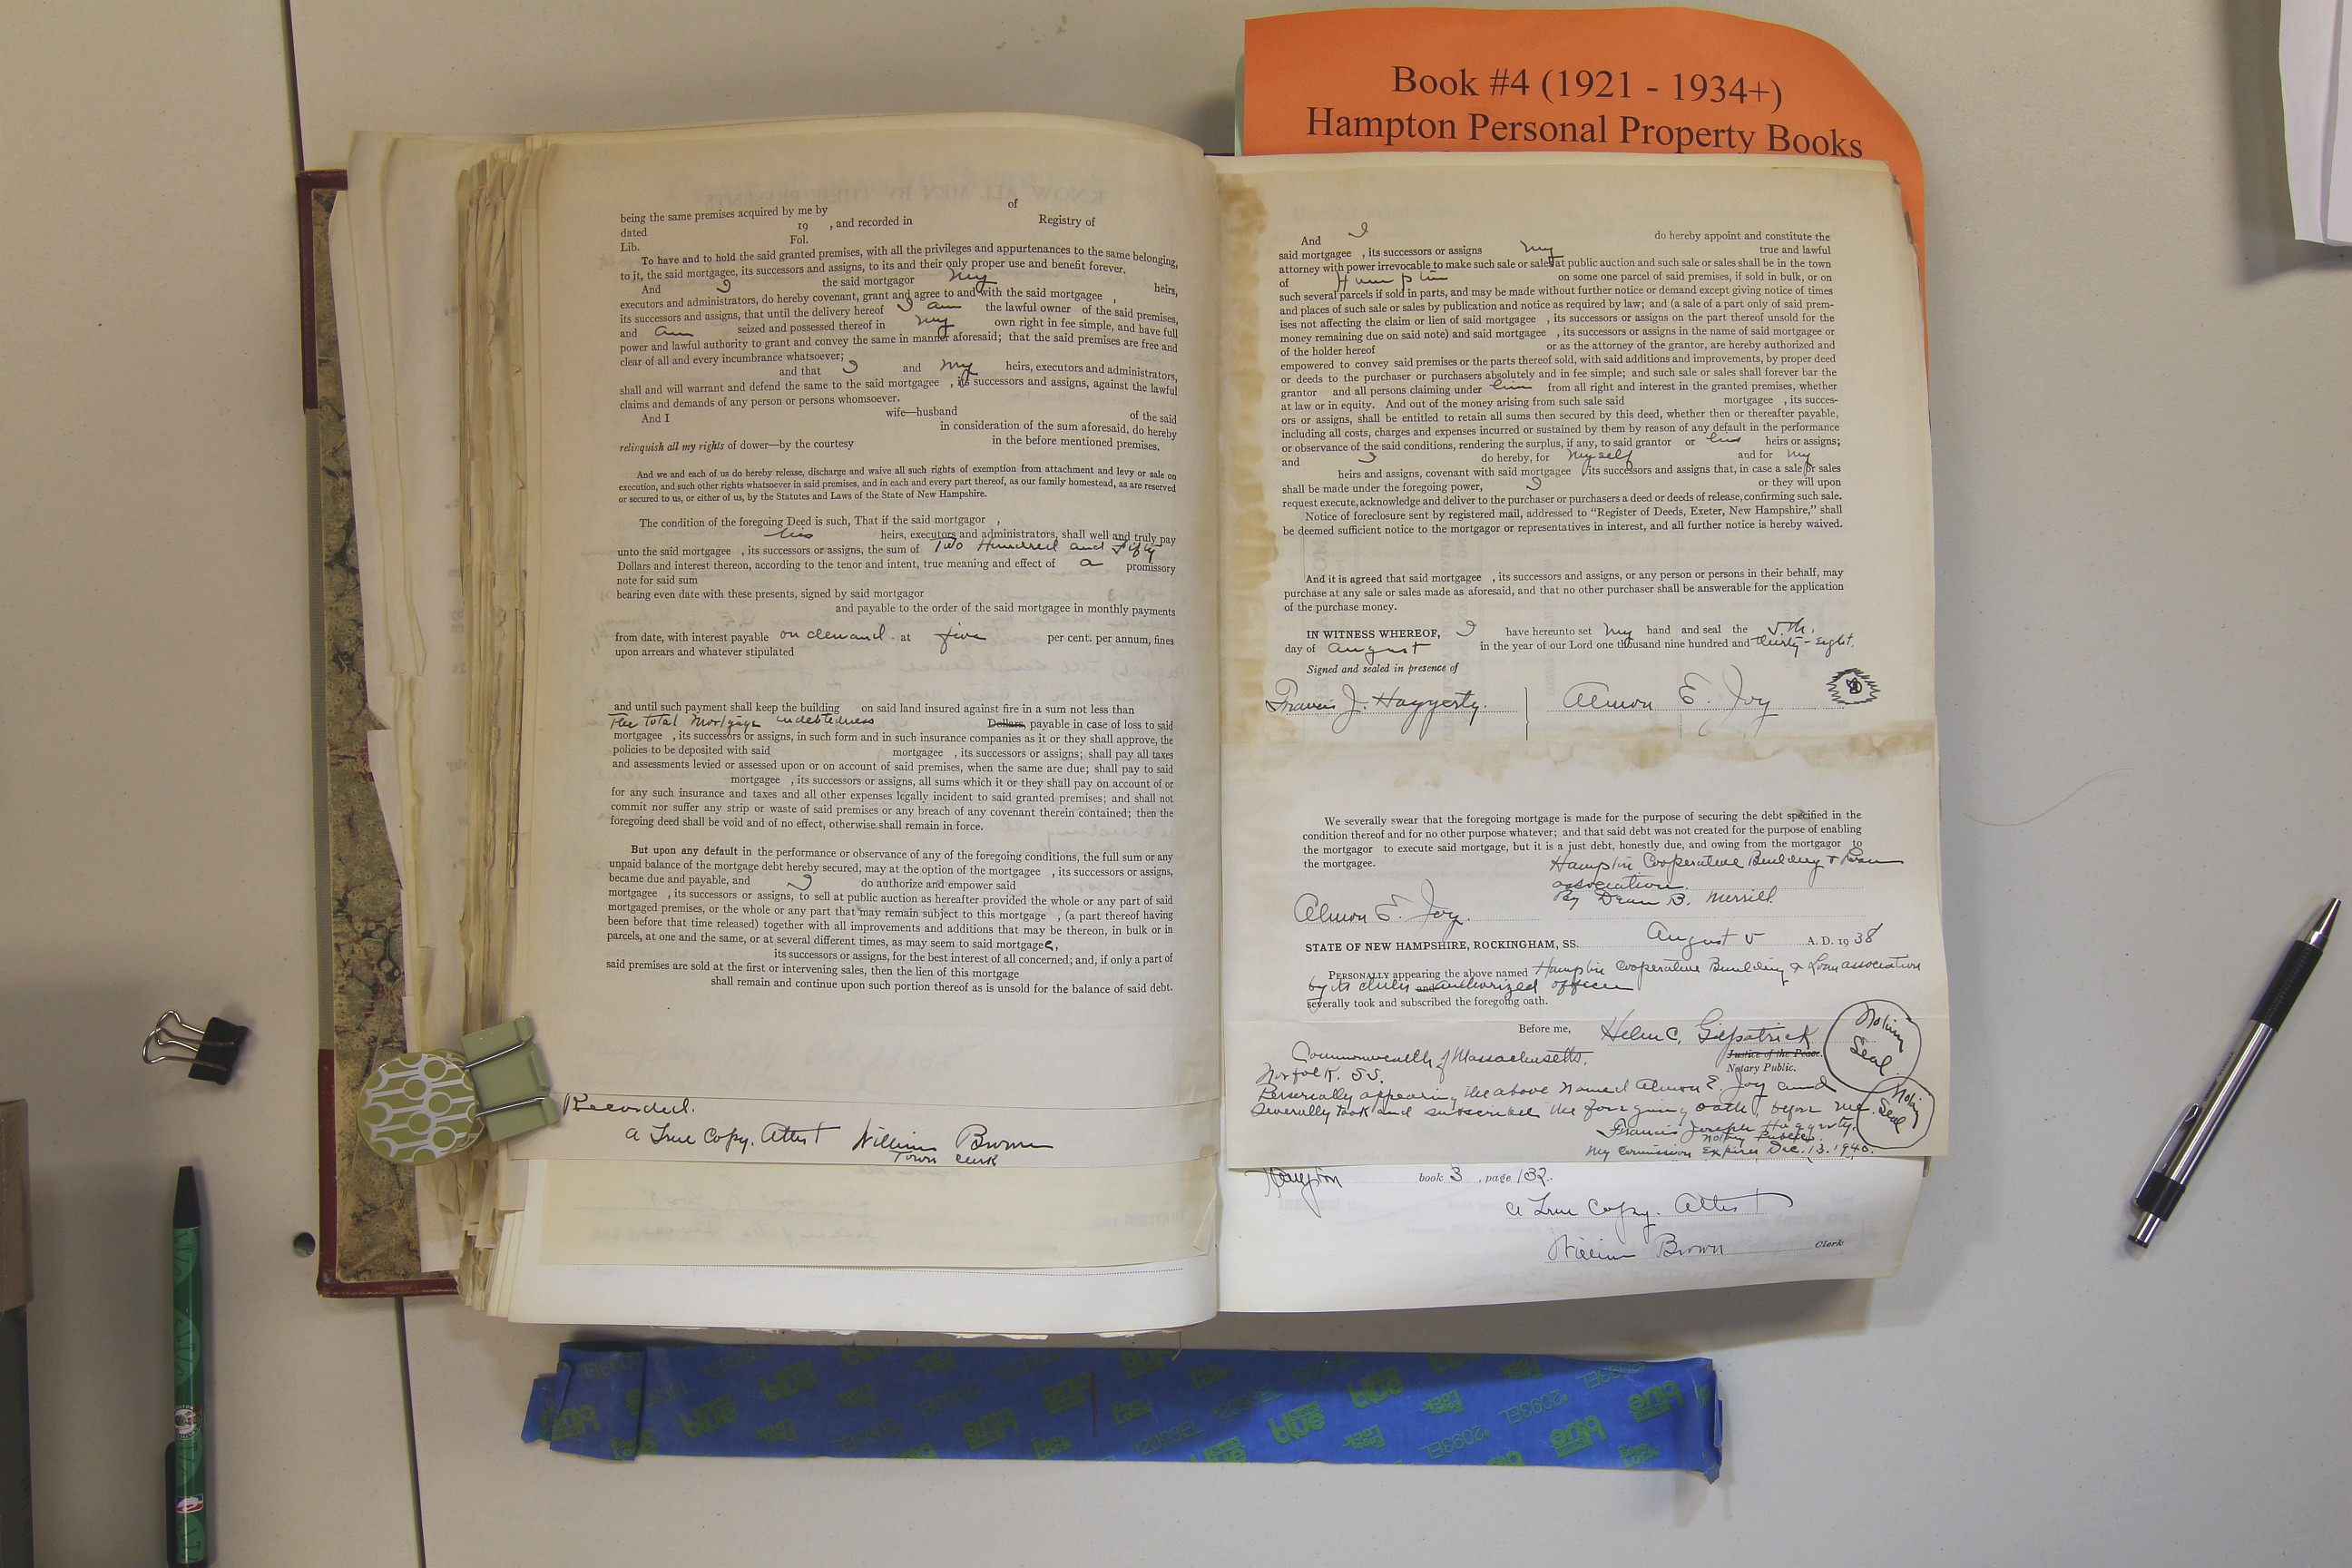 Book #4 (1921 - 1934+)
Hampton Personal Property Books
being the same premises acquired by me by of
dated 19 , and recorded in Registry of
Lib. Fol.
To have and to hold the said granted premises, with all the privileges and appurtenances to the same belonging,
to it, the said mortgagee, its successors and assigns, to its and their only proper use and benefit forever.
And I the said mortgagor my heirs,
executors and administrators, do hereby covenant, grant and agree to and with the said mortgagee ,
its successors and assigns, that until the delivery hereof I am the lawful owner of the said premises,
and am seized and possessed thereof in my own right in fee simple, and have full
power and lawful authority to grant and convey the same in manner aforesaid; that the said premises are free and
clear of all and every incumbrance whatsoever;
and that I and my heirs, executors and administrators,
shall and will warrant and defend the same to the said mortgagee , its successors and assigns, against the lawful
claims and demands of any person or persons whomsoever.
And I wife—husband of the said
in consideration of the sum aforesaid, do hereby
relinquish all my rights of dower—by the courtesy in the before mentioned premises.
And we and each of us do hereby release, discharge and waive all such rights of exemption from attachment and levy or sale on
execution, and such other rights whatsoever in said premises, and in each and every part thereof, as our family homestead, as are reserved
or secured to us, or either of us, by the Statutes and Laws of the State of New Hampshire.
The condition of the foregoing Deed is such, That if the said mortgagor ,
his heirs, executors and administrators, shall well and truly pay
unto the said mortgagee , its successors or assigns, the sum of Two Hundred and Fifty
Dollars and interest thereon, according to the tenor and intent, true meaning and effect of a promissory
note for said sum
bearing even date with these presents, signed by said mortgagor
and payable to the order of the said mortgagee in monthly payments
from date, with interest payable on demand at five per cent. per annum, fines
upon arrears and whatever stipulated
and until such payment shall keep the building on said land insured against fire in a sum not less than
The total Mortgage indebtedness Dollars, payable in case of loss to said
mortgagee , its successors or assigns, in such form and in such insurance companies as it or they shall approve, the
policies to be deposited with said mortgagee , its successors or assigns; shall pay all taxes
and assessments levied or assessed upon or on account of said premises, when the same are due; shall pay to said
mortgagee , its successors or assigns, all sums which it or they shall pay on account of or
for any such insurance and taxes and all other expenses legally incident to said granted premises; and shall not
commit nor suffer any strip or waste of said premises or any breach of any covenant therein contained; then the
foregoing deed shall be void and of no effect, otherwise shall remain in force.
But upon any default in the performance or observance of any of the foregoing conditions, the full sum or any
unpaid balance of the mortgage debt hereby secured, may at the option of the mortgagee , its successors or assigns,
became due and payable, and I do authorize and empower said
mortgagee , its successors or assigns, to sell at public auction as hereafter provided the whole or any part of said
mortgaged premises, or the whole or any part that may remain subject to this mortgage , (a part thereof having
been before that time released) together with all improvements and additions that may be thereon, in bulk or in
parcels, at one and the same, or at several different times, as may seem to said mortgagee,
its successors or assigns, for the best interest of all concerned; and, if only a part of
said premises are sold at the first or intervening sales, then the lien of this mortgage
shall remain and continue upon such portion thereof as is unsold for the balance of said debt.
Recorded.
A True Copy. Attest William Brown
Town Clerk
And I do hereby appoint and constitute the
said mortgagee , its successors or assigns my true and lawful
attorney with power irrevocable to make such sale or sales at public auction and such sale or sales shall be in the town
of Hampton on some one parcel of said premises, if sold in bulk, or on
such several parcels if sold in parts, and may be made without further notice or demand except giving notice of times
and places of such sale or sales by publication and notice as required by law; and (a sale of a part only of said prem-
ises not affecting the claim or lien of said mortgagee , its successors or assigns on the part thereof unsold for the
money remaining due on said note) and said mortgagee , its successors or assigns in the name of said mortgagee or
of the holder hereof or as the attorney of the grantor, are hereby authorized and
empowered to convey said premises or the parts thereof sold, with said additions and improvements, by proper deed
or deeds to the purchaser or purchasers absolutely and in fee simple; and such sale or sales shall forever bar the
grantor and all persons claiming under him from all right and interest in the granted premises, whether
at law or in equity. And out of the money arising from such sale said mortgagee , its succes-
ors or assigns, shall be entitled to retain all sums then secured by this deed, whether then or thereafter payable,
including all costs, charges and expenses incurred or sustained by them by reason of any default in the performance
or observance of the said conditions, rendering the surplus, if any, to said grantor or his heirs or assigns;
and I do hereby, for myself and for my
heirs and assigns, covenant with said mortgagee its successors and assigns that, in case a sale or sales
shall be made under the foregoing power, I or they will upon
request execute, acknowledge and deliver to the purchaser or purchasers a deed or deeds of release, confirming such sale.
Notice of foreclosure sent by registered mail, addressed to "Register of Deeds, Exeter, New Hampshire," shall
be deemed sufficient notice to the mortgagor or representatives in interest, and all further notice is hereby waived.
And it is agreed that said mortgagee , its successors and assigns, or any person or persons in their behalf, may
purchase at any sale or sales made as aforesaid, and that no other purchaser shall be answerable for the application
of the purchase money.
IN WITNESS WHEREOF, I have hereunto set my hand and seal the 5th.
day of August in the year of our Lord one thousand nine hundred and thirty-eight.
Signed and sealed in presence of
Francis J. Haggerty. Almon E. Joy
We severally swear that the foregoing mortgage is made for the purpose of securing the debt specified in the
condition thereof and for no other purpose whatever; and that said debt was not created for the purpose of enabling
the mortgagor to execute said mortgage, but it is a just debt, honestly due, and owing from the mortgagor to
the mortgagee. Hampton Cooperative Building & Loan
association.
By Dean B. Merrill.
Almon E. Joy.
STATE OF NEW HAMPSHIRE, ROCKINGHAM, SS. August 5 A. D. 1938
PERSONALLY appearing the above named Hampton Cooperative Building & Loan association
by its and authorized officer
severally took and subscribed the foregoing oath.
Before me, Helen C. Gilpatrick
Justice of the Peace.
Notary Public.
Notary
Seal.
Commonwealth of Massachusetts.
Norfolk. SS.
Personally appearing the above named Almon E. Joy and
severally took and subscribed the foregoing oath, before me.
Notary
Seal
Francis Joseph Haggerty.
Notary Public.
My Commission Expires Dec. 13. 1940.
Hampton book 3 , page 132.
A True Copy. Attest
William Brown Clerk
blue
2093EL